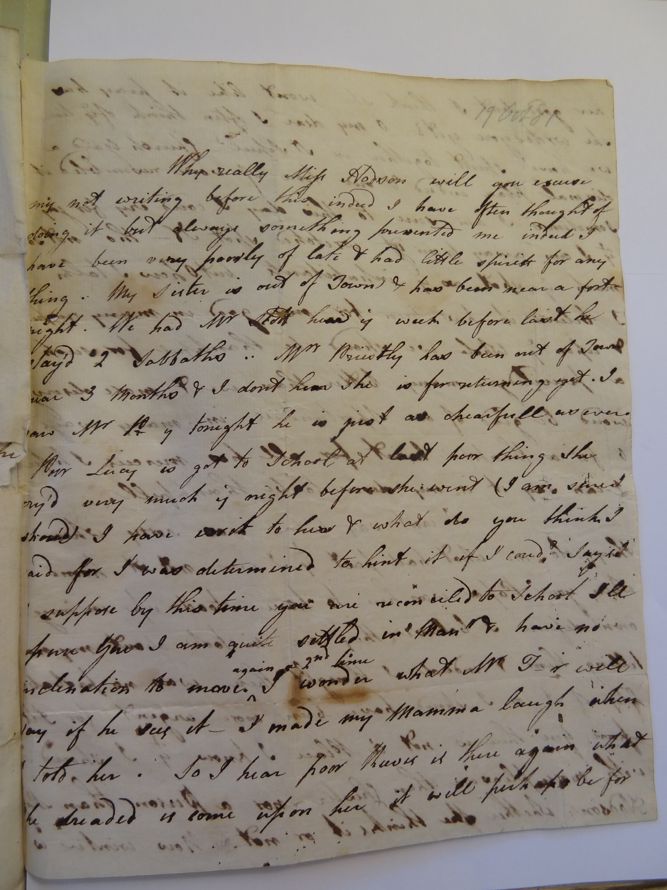 19 Oct 81
Why really Miss Hodson will you excuse
my not writing before this indeed I have often thought of
doing it but always something prevented me indeed I
have been very poorly of late & had little spirits for any
thing. My Sister is out of Town & has been near a fort
night. We had Mr hear y week before last he
stay'd 2 Sabbaths .. Mrs Priestley has been out of Town
near 3 Months & I dont hear she is for returning yet. I
saw Mr P y tonight he is just as chearfull as ever
Poor Lucy is got to School at last poor thing she
cry'd very much y night before she went (I am sure I
should) I have writ to her & what do you think I
said for I was determined to hint it if I coud, says I
I suppose by this time you are reconciled to School I'll
you I am quite settled in Manr & have no
again a 2nd time
inclination to move. I wonder what Mr T r will
say if he sees it - I made my Mamma laugh when
I told her. So I hear poor Reeves is there again what
he dreaded is come upon her it will perhaps be for